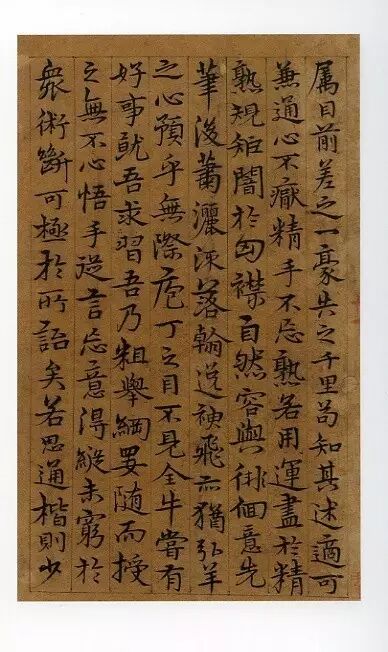 属目前差之一豪失之千里苟知其述適可
兼通心不厭精手不忘熟若用運盡於精
熟規矩闇於匈襟自然容與徘徊意先
筆後蕭灑流落翰逸神飛亦猶弘羊
之心預乎無際庖丁之目不見全牛嘗有
好事就吾求習吾乃粗舉綱要随而授
之無不心悟手從言忘意得縱未窮於
衆術斷可極於所詣矣若思通楷則少